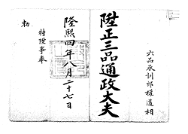 六品承訓郎權道相
陞正三品通政大夫
隆熙四年八月二十七日
特陞事奉
勅